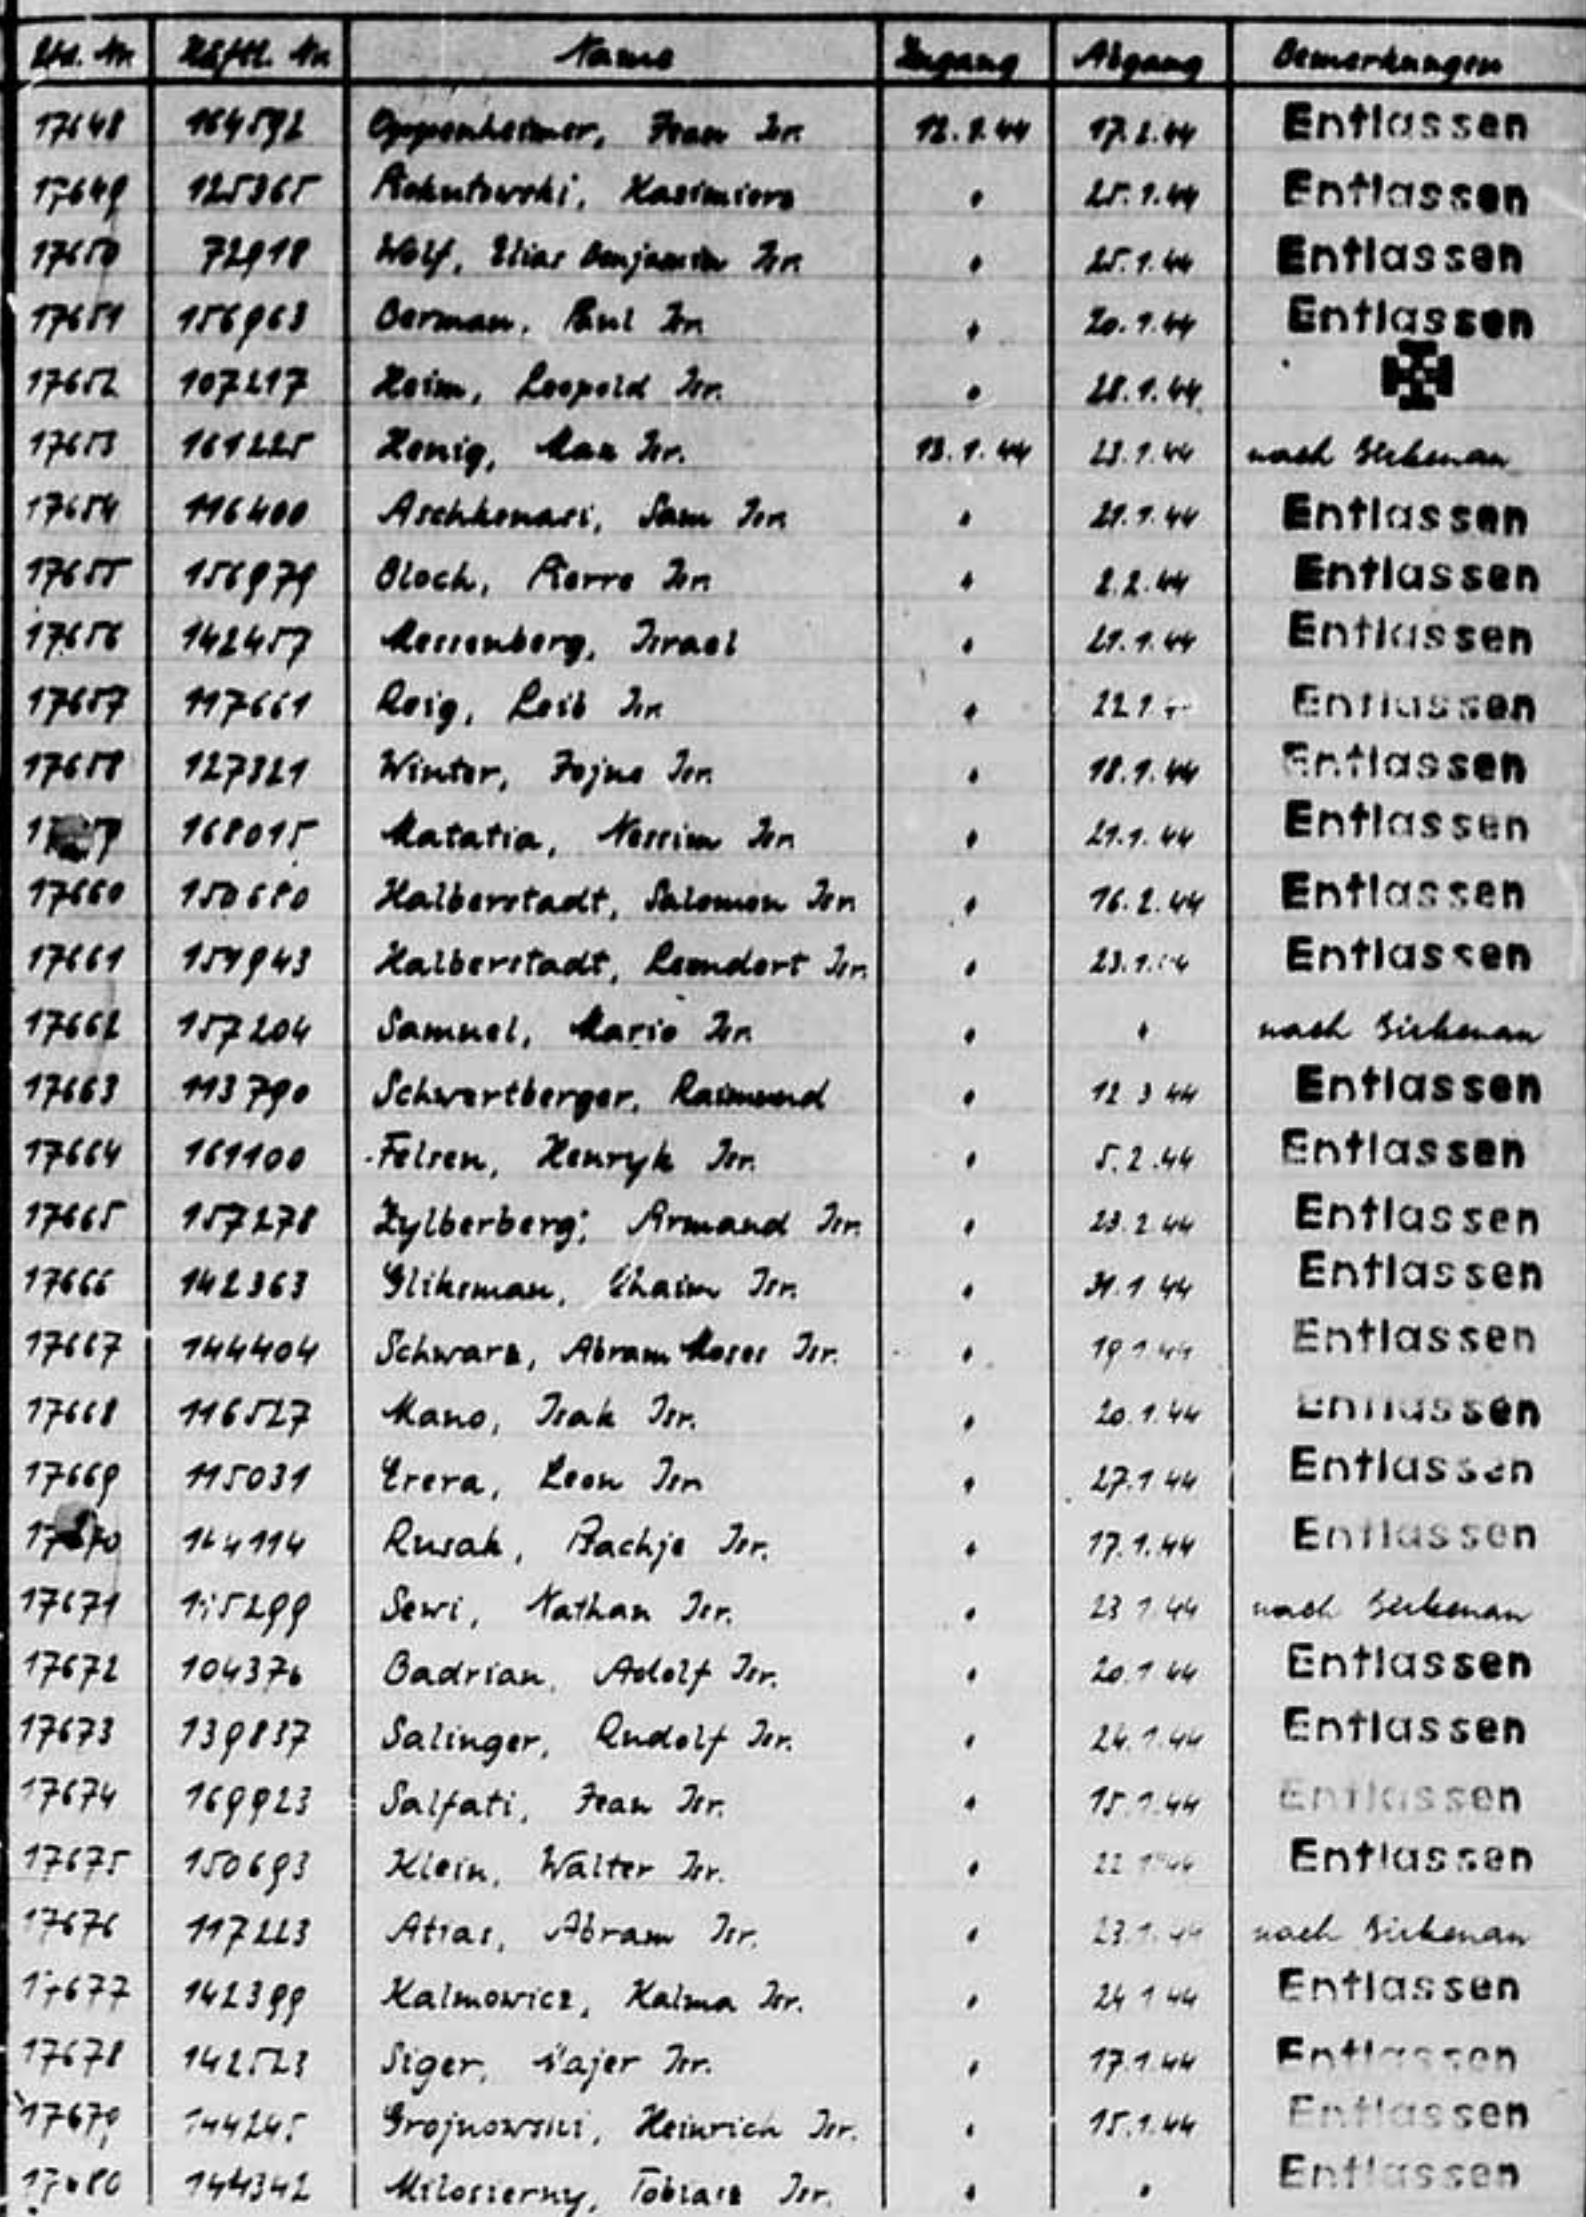 Lfd. Nr Häftl. Nr Name Zugang Abgang Bemerkungen
17648 164592 Oppenheimer, Jean Isr. 12.1.44 17.2.44 Entlassen
17649 125365 Rokutowski, Kasimierz " 25.1.44 Entlassen
17650 72918 Wolf, Elias Benjamin Isr. " 25.1.44 Entlassen
17651 156963 Berman, Paul Isr. " 20.1.44 Entlassen
17652 107217 Heim, Leopold Isr. " 28.1.44
17653 161225 Honig, Max Isr. 13.1.44 23.1.44 nach Birkenau
17654 116400 Aschkenasi, Sam Isr. " 21.1.44 Entlassen
17655 156979 Bloch, Pierre Isr. " 2.2.44 Entlassen
17656 142457 Messenberg, Israel " 21.1.44 Entlassen
17657 117661 Reig, Leib Isr. " 22.1. Entlassen
17658 127321 Winter, Fojne Isr. " 18.1.44 Entlassen
168015 Matatia, Nessim Isr. " 21.1.44 Entlassen
17660 150680 Halberstadt, Salomon Isr. " 16.2.44 Entlassen
17661 151943 Halberstadt, Leendert Isr. " 23.1.44 Entlassen
17662 157204 Samuel, Mario Isr. " " nach Birkenau
17663 113790 Schwertberger, Raimund " 12.3.44 Entlassen
17664 161100 Felsen, Henryk Isr. " 5.2.44 Entlassen
17665 157278 Zylberberg, Armand Isr. " 23.2.44 Entlassen
17666 142363 Gliksman, Chaim Isr. " 31.1.44 Entlassen
17667 144404 Schwarz, Abram Moses Isr. " 19.1.44 Entlassen
17668 116527 Mano, Isak Isr. " 20.1.44 Entlassen
17669 115031 Errera, Leon Isr. " 27.1.44 Entlassen
17670 144114 Rusak, Pachje Isr. " 17.1.44 Entlassen
17671 Sewi, Nathan Isr. " 23.1.44 nach Birkenau
17672 104376 Badrian, Adolf Isr. " 20.1.44 Entlassen
17673 139837 Salinger, Rudolf Isr. " 24.1.44 Entlassen
17674 169923 Salfati, Jean Isr. " 15.1.44 Entlassen
17675 150693 Klein, Walter Isr. " 22.1.44 Entlassen
17676 117223 Atias, Abram Isr. " 23.1.44 nach Birkenau
17677 142399 Kalmowicz, Kalma Isr. " 24.1.44 Entlassen
17678 142523 Siger, Majer Isr. " 17.1.44 Entlassen
17679 144245 Grojnowski, Heinrich Isr. " 15.1.44 Entlassen
17680 144342 Milosierny, Tobiasz Isr. " " Entlassen